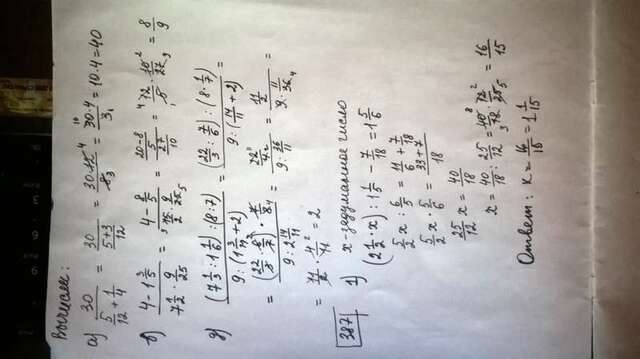 Вычисли:
а) 30/(5/12 + 1/4) = 30/((5+3)/12) = 30·12/8 = 30·4/3 = 10·4 = 40
б) (4 − 1 3/5)/(7 1/2 · 9/25) = (4 − 8/5)/(15/2 · 9/25) = ((20−8)/5)/(27/10) = 12/5 · 10/27 = 8/9
д) ((7 1/3 : 1 1/6) : (8:7))/(9 : (1 3/11 + 2)) = ((22/3 : 7/6) : (8 · 1/7))/(9 : (14/11 + 2)) =
= ((22/3 · 6/7) · 7/8)/(9 : 2 14/11) = (22/4)/(9 : 36/11) = (11/2)/(9 · 11/36) =
= 11/2 · 4/11 = 2
387 1) x - задуманное число
(2 1/2 · x) : 1 1/5 − 7/18 = 1 5/6
5/2 x : 6/5 = 11/6 + 7/18
5/2 x · 5/6 = (33+7)/18
25/12 x = 40/18
x = 40/18 : 25/12 = 40/18 · 12/25 = 16/15
Ответ: x = 16/15 = 1 1/15